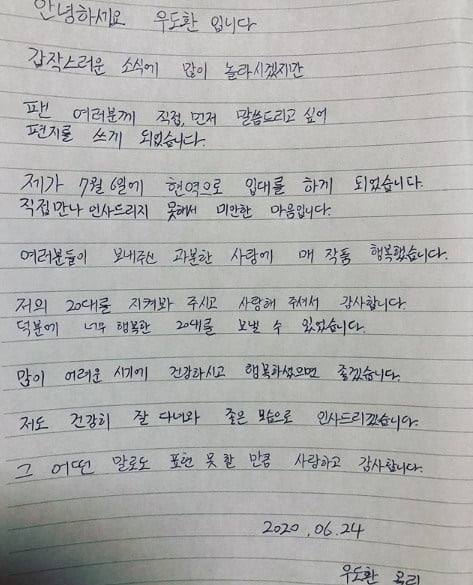 안녕하세요 우도환 입니다
갑작스러운 소식에 많이 놀라시겠지만
팬 여러분께 직접, 먼저 말씀드리고 싶어
편지를 쓰게 되었습니다.
제가 7월 6일에 현역으로 입대를 하게 되었습니다.
직접 만나 인사드리지 못해서 미안한 마음입니다.
여러분들이 보내주신 과분한 사랑에 매 작품 행복했습니다.
저의 20대를 지켜봐 주시고 사랑해 주셔서 감사합니다.
덕분에 너무 행복한 20대를 보낼 수 있었습니다.
많이 어려운 시기에 건강하시고 행복하셨으면 좋겠습니다.
저도 건강히 잘 다녀와 좋은 모습으로 인사드리겠습니다.
그 어떤 말로도 표현 못 할 만큼 사랑하고 감사합니다.
2020.06.24
우도환 올림